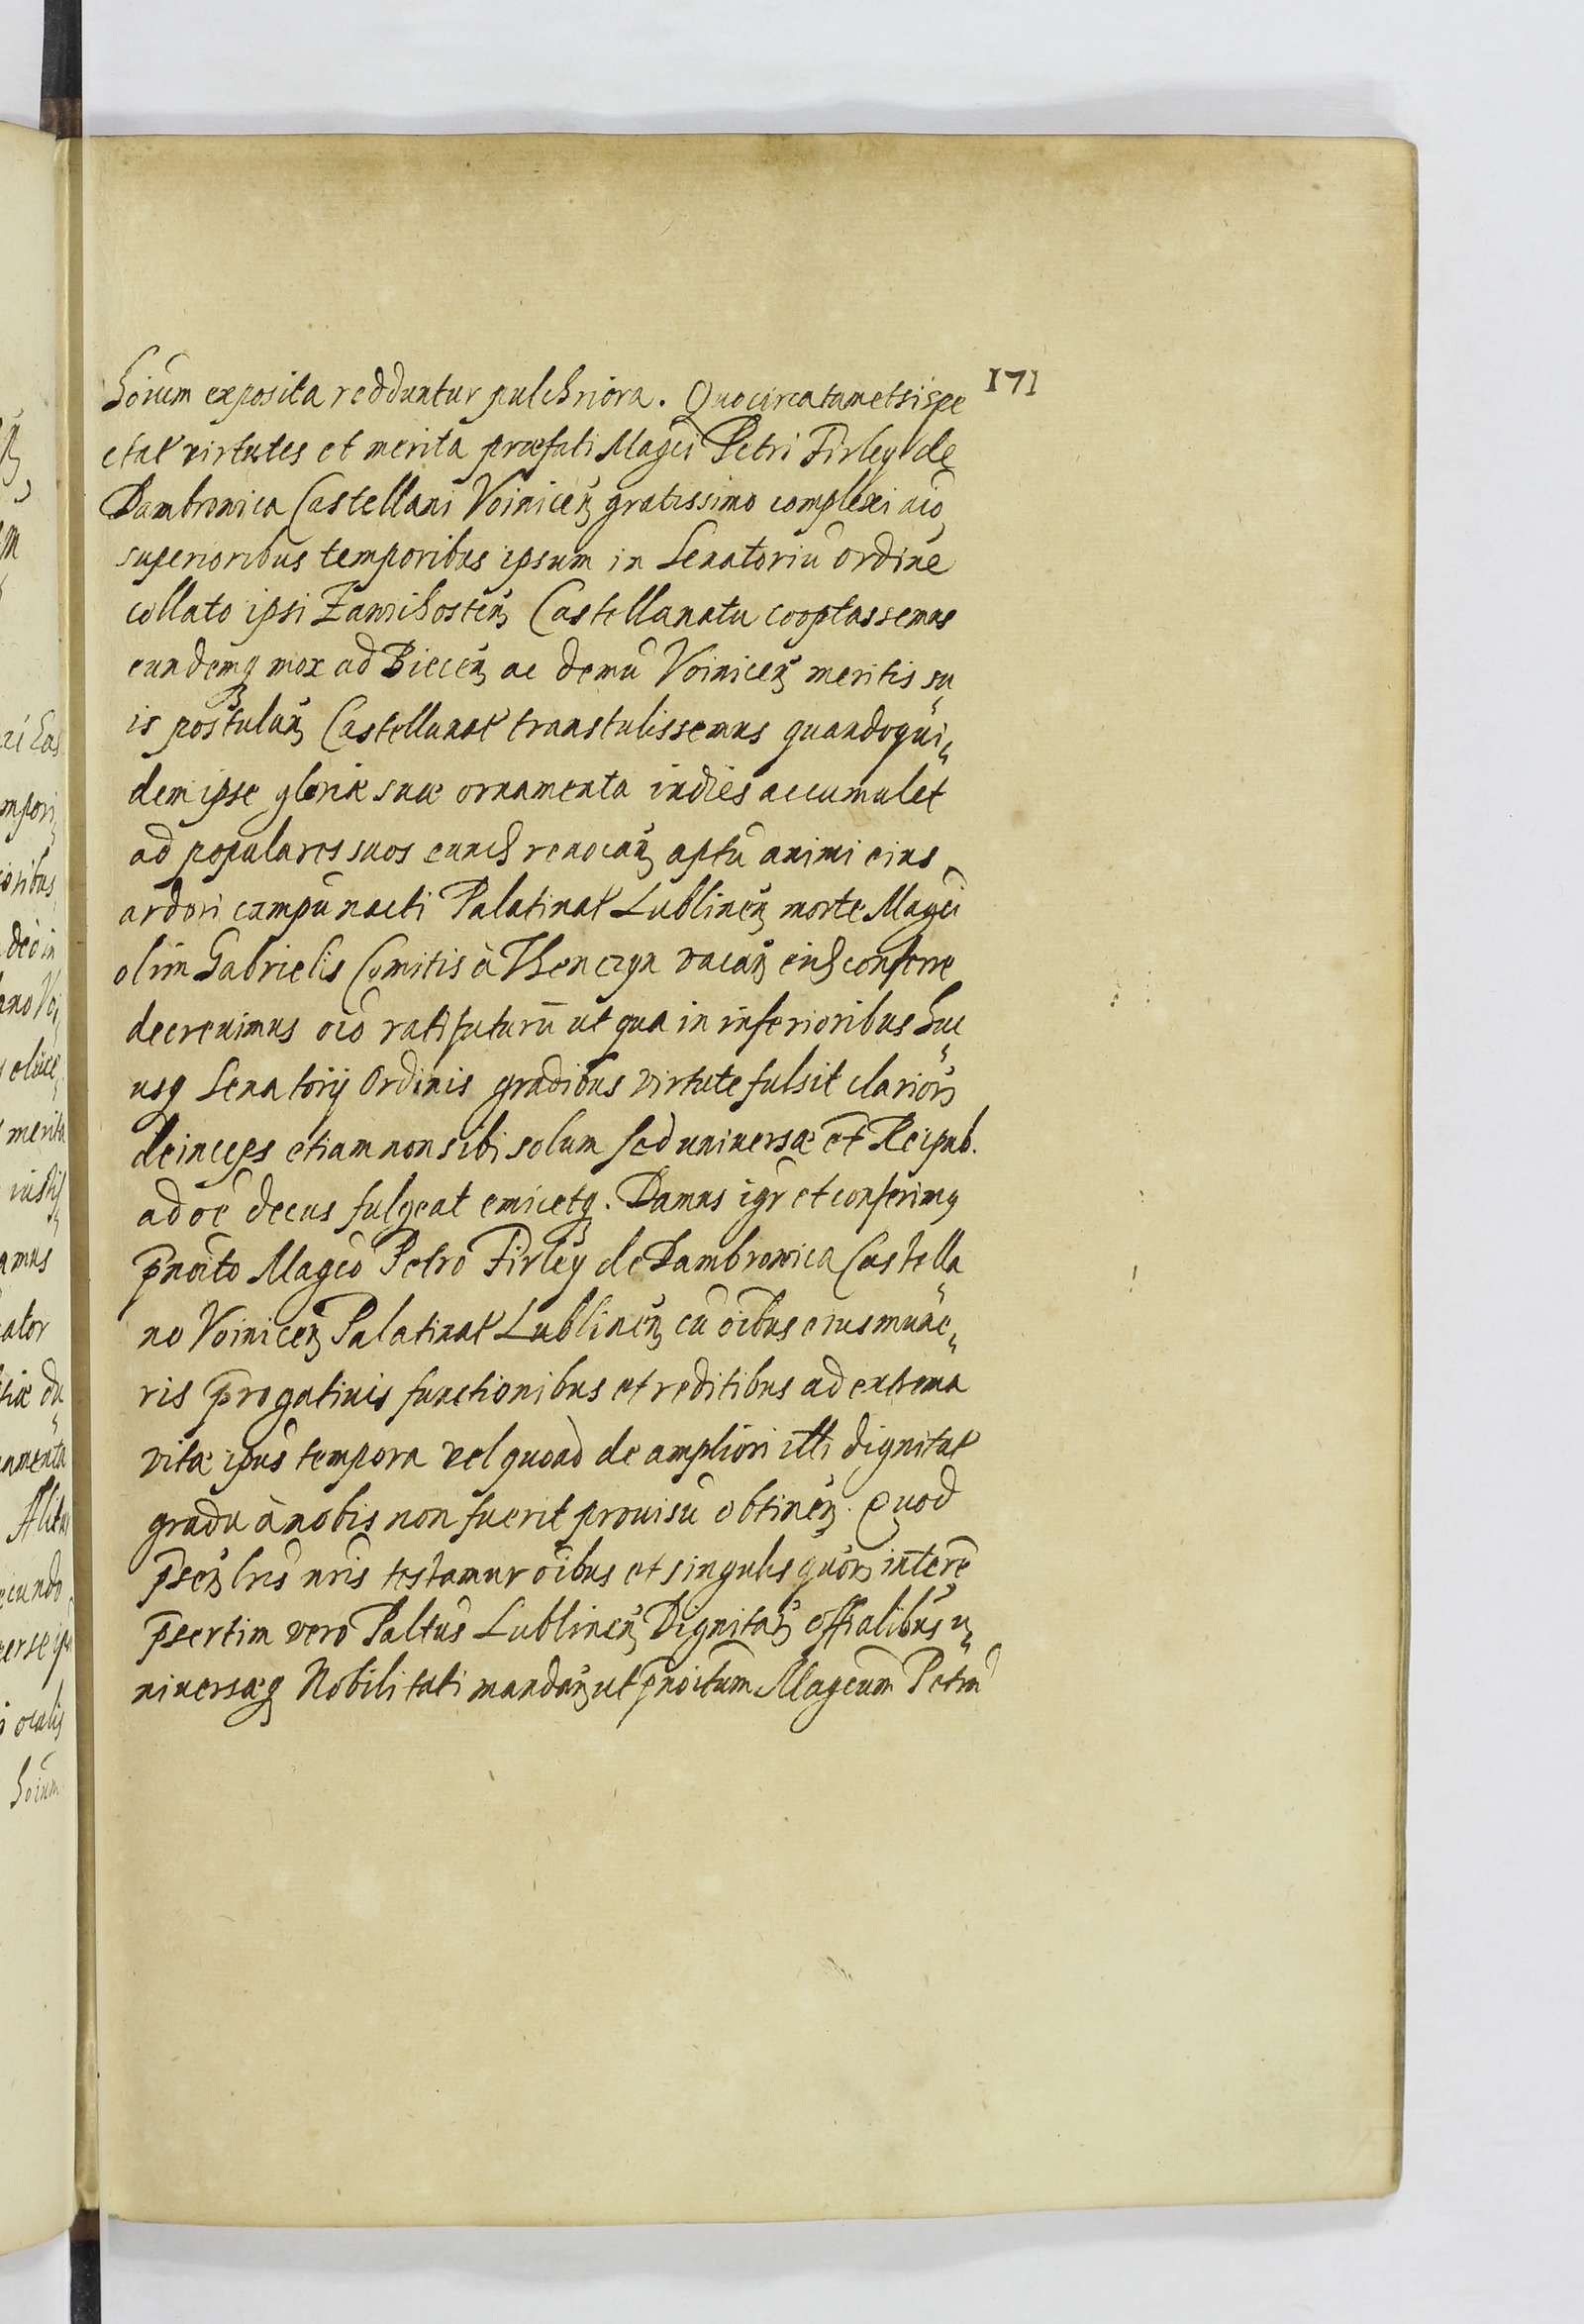 171
hoium exposita redduntur pulchriora. Quocirca tametsi spe
ctat virtutes et merita præfati Magci Petri Firley de
Dambrowica Castellani Voinicen gratissimo complexi aio
superioribus temporibus ipsum in Senatoriu ordine
collato ipsi Zawichosten Castellanatu cooptassemus
eundemq mox ad Biecen ac demu Voinicen meritis su„
is postulan Castellanat transtulissemus quandoqui„
dem ipse gloriæ suæ ornamenta indies accumulet
ad populares suos eund revocan aptu animi eius
ardori campu nacti Palatinat Lublinen morte Magci
olim Gabrielis Comitis à Thenczyn vacan eid conferre
decrevimus oio rati futurū ut qua in inferioribus huc„
usq Senatorij Ordinis gradibus virtute fulsit clarior
deinceps etiam non sibi solum sed universæ et Reipub.
ad oe decus fulgeat emicetq. Damus igr et conferimq
pnoito Magco Petro Firley de Dambrowica Castella„
no Voinicen Palatinat Lublinen cu oibus eius mune„
ris progativis functionibus et reditibus ad extrema
vitæ ipus tempora vel quoad de ampliori illi dignitat
gradu à nobis non fuerit provisu obtinen. Quod
psen lris nris testamur oibus et singulis quor interē
psertim vero Paltus Lublinen Dignitar offialibus u„
niversæq Nobilitati mandan ut pnoitum Magcum Petru